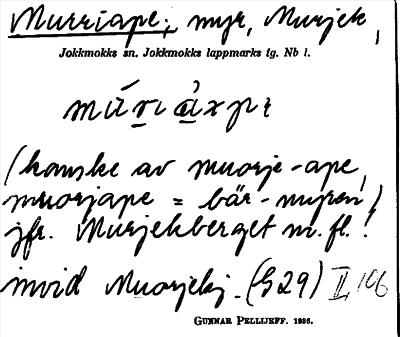 Murriape, myr, Murjek,
Jokkmokks sn, Jokkmokks lappmarks tg. Nb l.
(kanske av muorje-ape,
muorjape = bär-myren,)
jfr. Murjekberget m.fl.!
invid Muorjekj. (G 29) II, 106
GUNNAR PELLIJEFF. 1936.